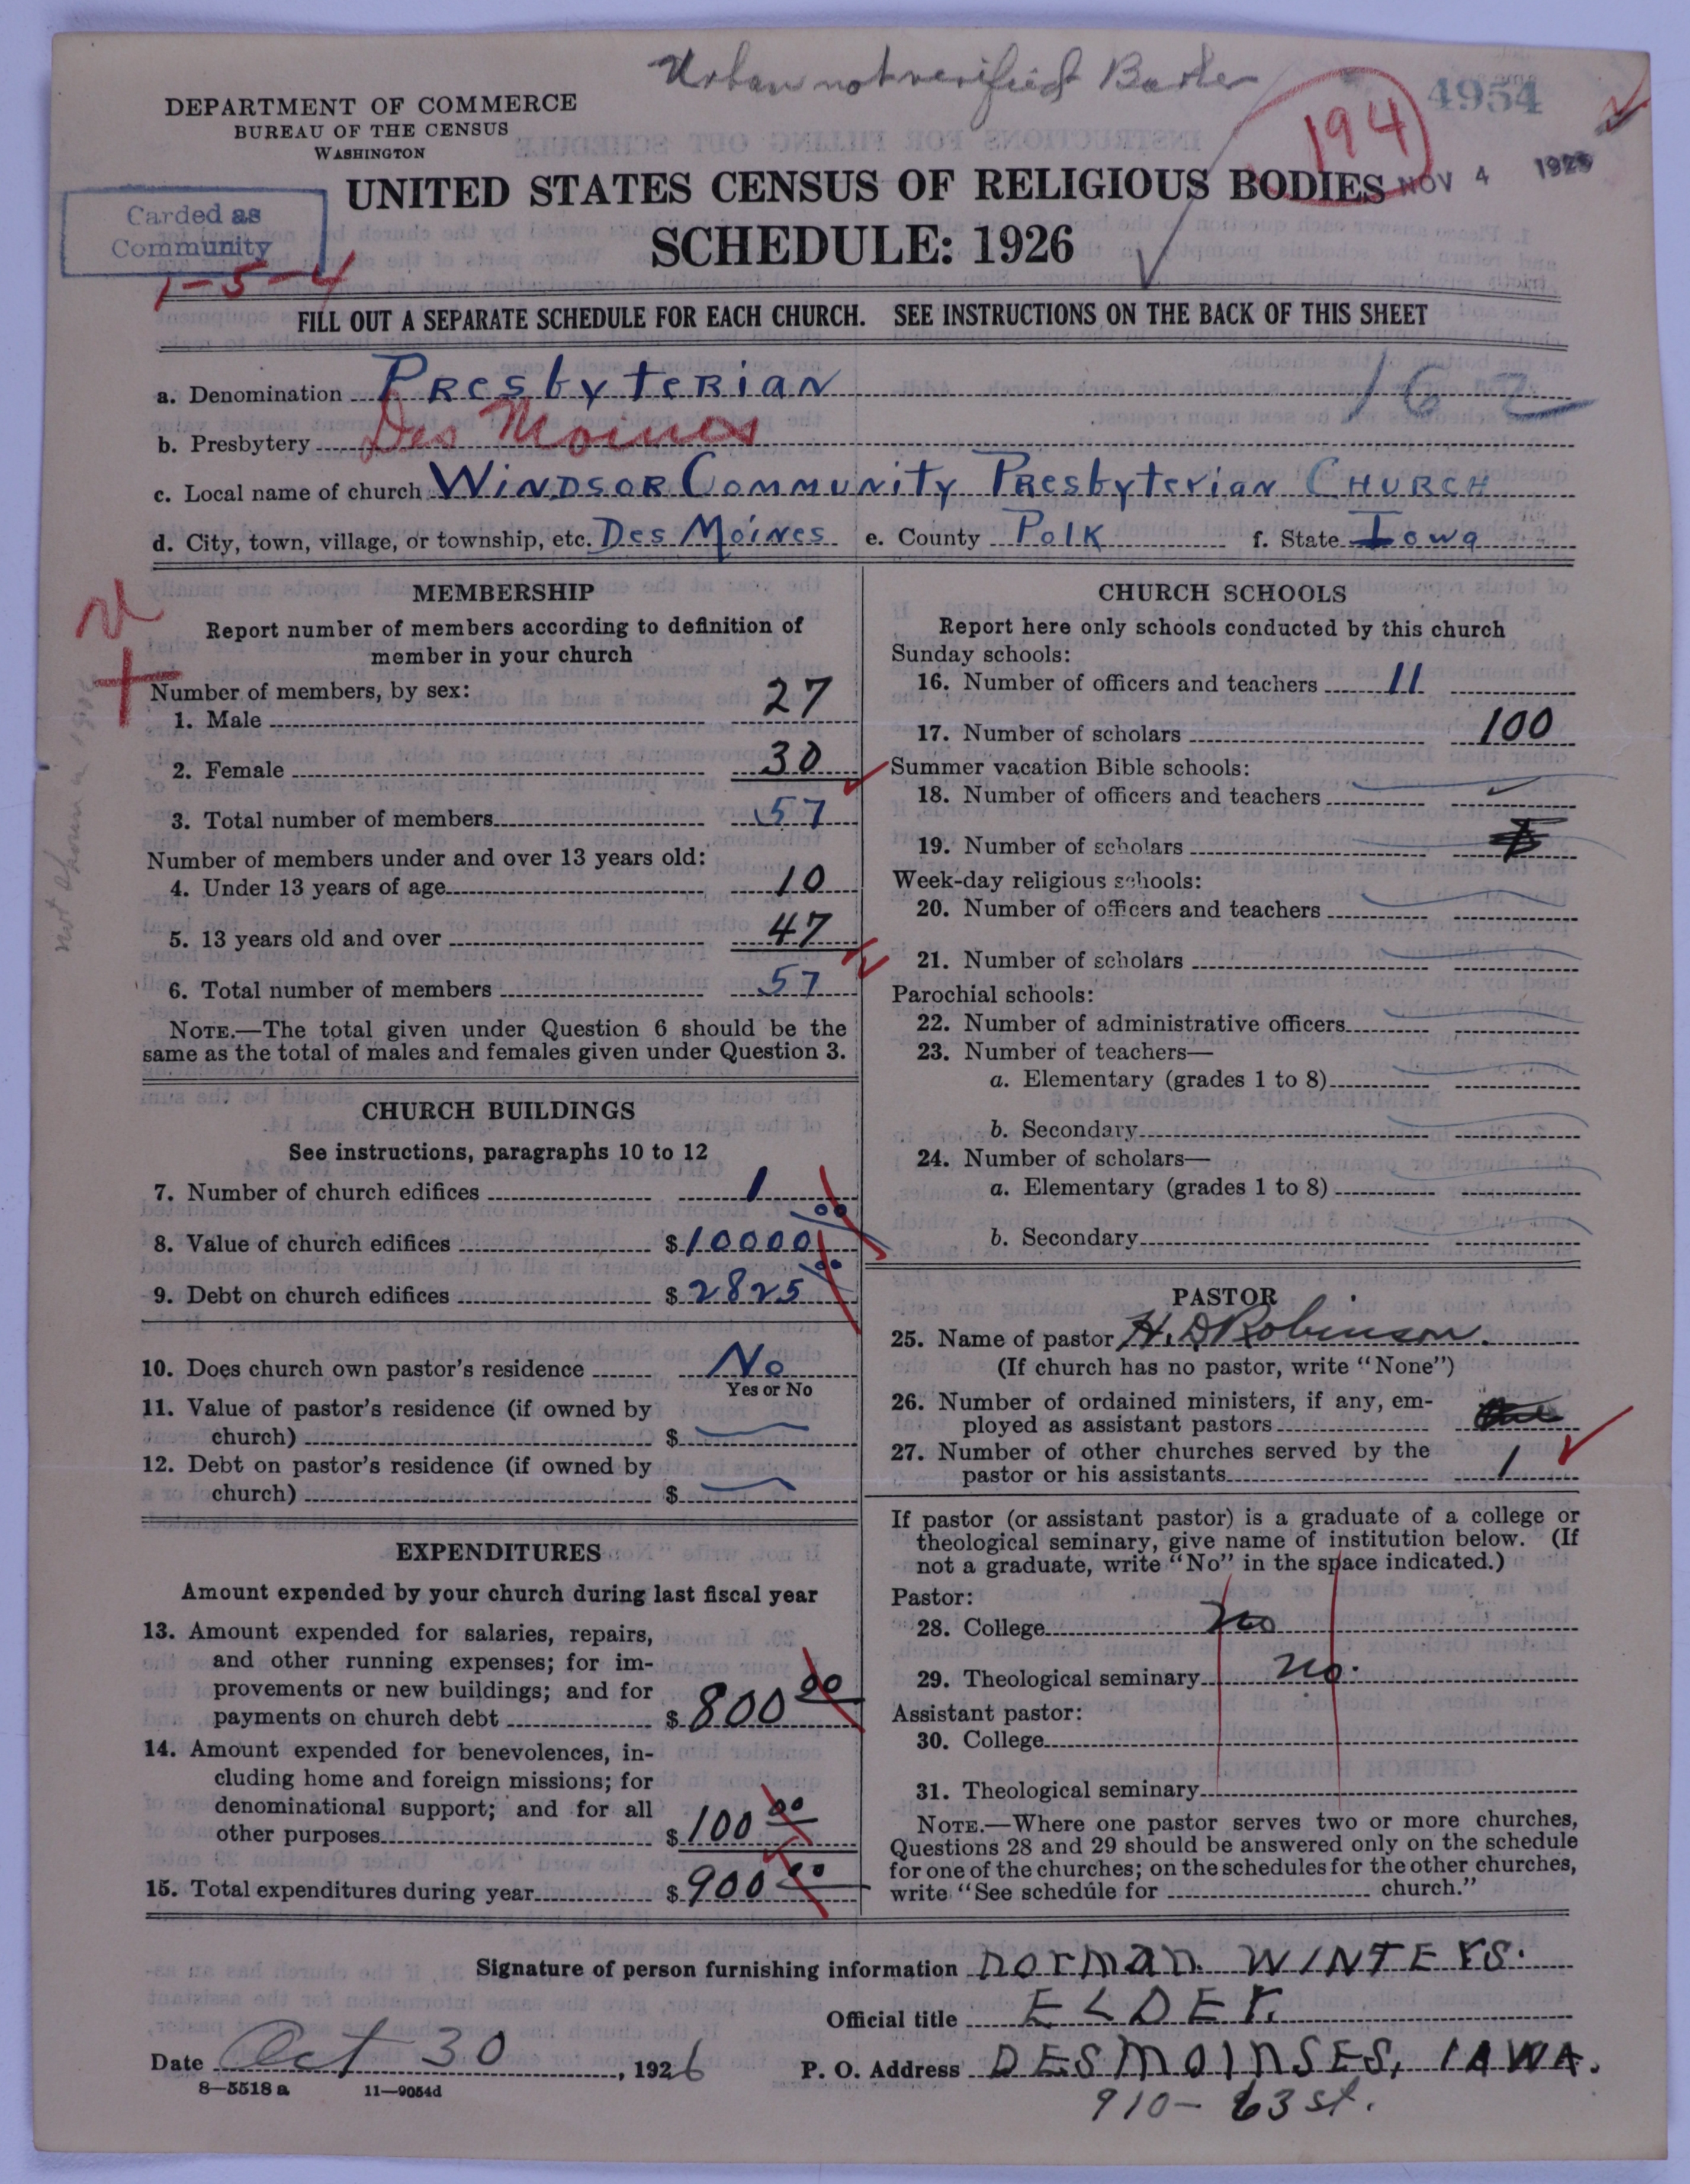 Urban not verified
4954
194
DEPARTMENT OF COMMERCE
BUREAU OF THE CENSUS
WASHINGTON
NOV 4 1926
UNITED STATES CENSUS OF RELIGIOUS BODIES
SCHEDULE: 1926
Carded as
Community
1-5-4
FILL OUT A SEPARATE SCHEDULE FOR EACH CHURCH. SEE INSTRUCTIONS ON THE BACK OF THIS SHEET
a. Denomination Presbyterian 162
b. Presbytery Des Moines
c. Local name of church Windsor Community Presbyterian Church
d. City, town, village, or township, etc. Des Moines e. County Polk f. State Iowa
MEMBERSHIP
Report number of members according to definition of
member in your church
Number of members, by sex:
1. Male 27
2. Female 30
3. Total number of members 57
Number of members under and over 13 years old:
4. Under 13 years of age 10
5. 13 years old and over 47
6. Total number of members 57
NOTE.—The total given under Question 6 should be the
same as the total of males and females given under Question 3.
CHURCH BUILDINGS
See instructions, paragraphs 10 to 12
7. Number of church edifices 1
8. Value of church edifices $10000 00
9. Debt on church edifices $2825 00
10. Does church own pastor's residence No
Yes or No
11. Value of pastor's residence (if owned by
church) $
12. Debt on pastor's residence (if owned by
church) $
EXPENDITURES
Amount expended by your church during last fiscal year
13. Amount expended for salaries, repairs,
and other running expenses; for im-
provements or new buildings; and for
payments on church debt $800 00
14. Amount expended for benevolences, in-
cluding home and foreign missions; for
denominational support; and for all
other purposes $100 00
15. Total expenditures during year $900 00
CHURCH SCHOOLS
Report here only schools conducted by this church
Sunday schools:
16. Number of officers and teachers 11
17. Number of scholars 100
Summer vacation Bible schools:
18. Number of officers and teachers
19. Number of scholars
Week-day religious schools:
20. Number of officers and teachers
21. Number of scholars
Parochial schools:
22. Number of administrative officers
23. Number of teachers—
a. Elementary (grades 1 to 8)
b. Secondary
24. Number of scholars—
a. Elementary (grades 1 to 8)
b. Secondary
PASTOR
25. Name of pastor H. D Robinson.
(If church has no pastor, write "None")
26. Number of ordained ministers, if any, em-
ployed as assistant pastors
27. Number of other churches served by the
pastor or his assistants 1
If pastor (or assistant pastor) is a graduate of a college or
theological seminary, give name of institution below. (If
not a graduate, write "No" in the space indicated.)
Pastor:
28. College no
29. Theological seminary no.
Assistant pastor:
30. College
31. Theological seminary
NOTE.—Where one pastor serves two or more churches,
Questions 28 and 29 should be answered only on the schedule
for one of the churches; on the schedules for the other churches,
write "See schedule for church."
Signature of person furnishing information Norman Winters.
Official title ELDEr.
Date Oct 30, 1926 P. O. Address DESMOINSES, IAWA.
8—5518 a 11—9054d
910- 63 st.